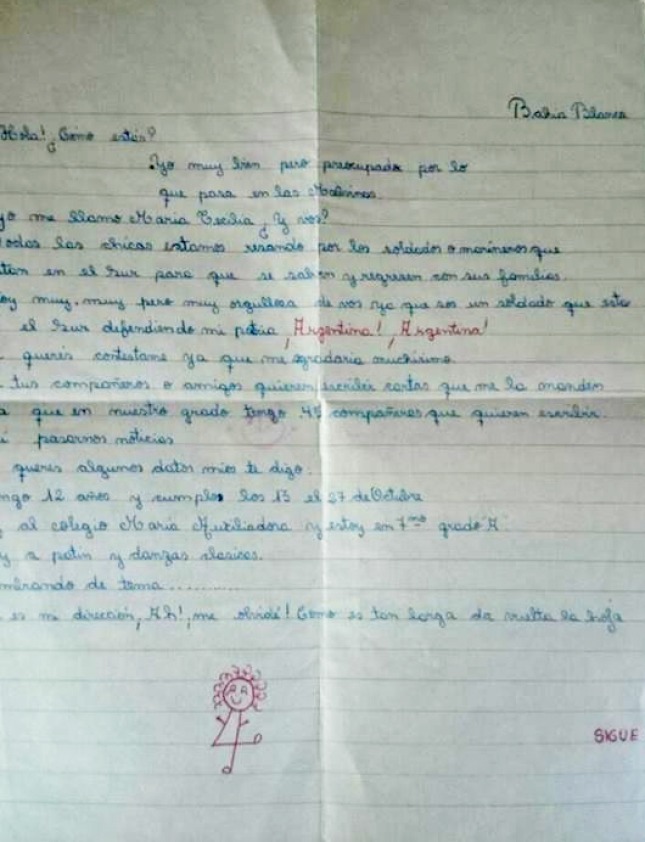 Bahia Blanca
Hola! ¿Cómo estás?
Yo muy bien pero preocupada por lo
que pasa en las Malvinas.
yo me llamo Maria Cecilia ¿Y vos?
odas las chicas estamos rezando por los soldados o marineros que
tan en el Sur para que se salven y regresen con sus familias.
oy muy, muy pero muy orgullosa de vos ya que sos un soldado que esta
el Sur defendiendo mi patria ¡Argentina! ¡Argentina!
querés contestame ya que me agradaria muchisimo
tus compañeros o amigos quieren escribir cartas que me la manden
a que en nuestro grado tengo 45 compañeras que quieren escribir.
i pasarnos noticias
queres algunos datos mios te digo:
ngo 12 años y cumplo los 13 el 27 de Octubre
y al colegio Maria Auxiliadora y estoy en 7mo grado "A"
y a patin y danzas clasicas.
mbiando de tema...........
es mi dirección, Ah!, me olvidé! Como es tan larga da vuelta la hoja
SIGUE